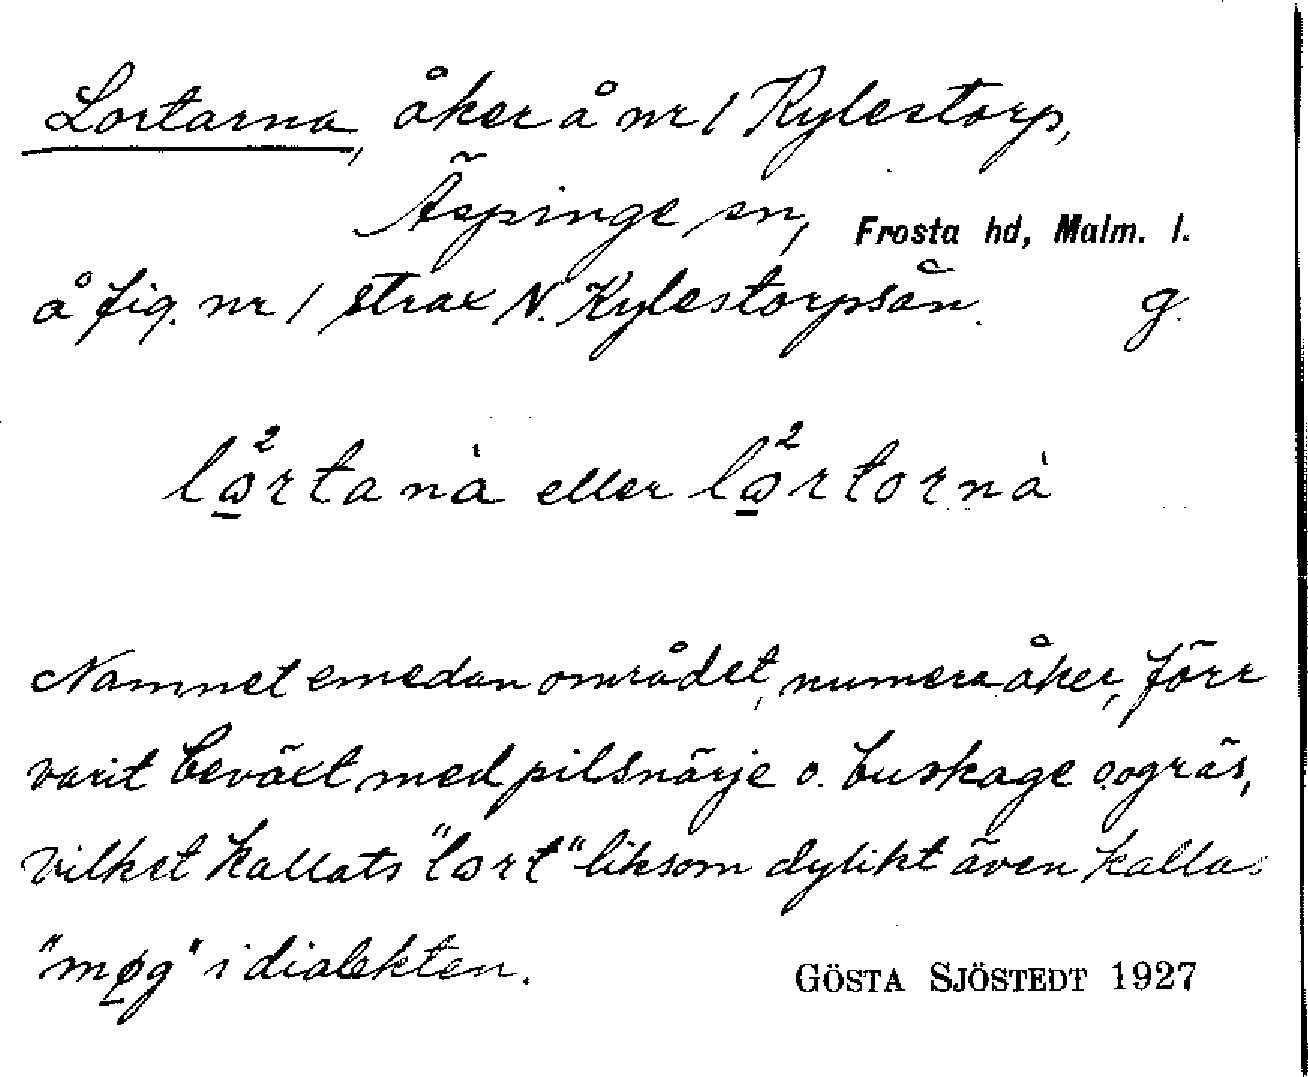 Lortarna, åker å nr 1 Kylestorp,
Äspinge sn, Frosta hd, Malm. l.
å fig. nr 1 strax N. Kylestorpsån. g.
lω̱²rtanà eller lω̱²rtornà
Namnet emedan området, numera åker, förr
varit beväxt med pilsnärje o. buskage o. ogräs,
vilket kallats "lωrt" liksom dylikt även kallas
"mø̱g" i dialekten.
GÖSTA SJÖSTEDT 1927